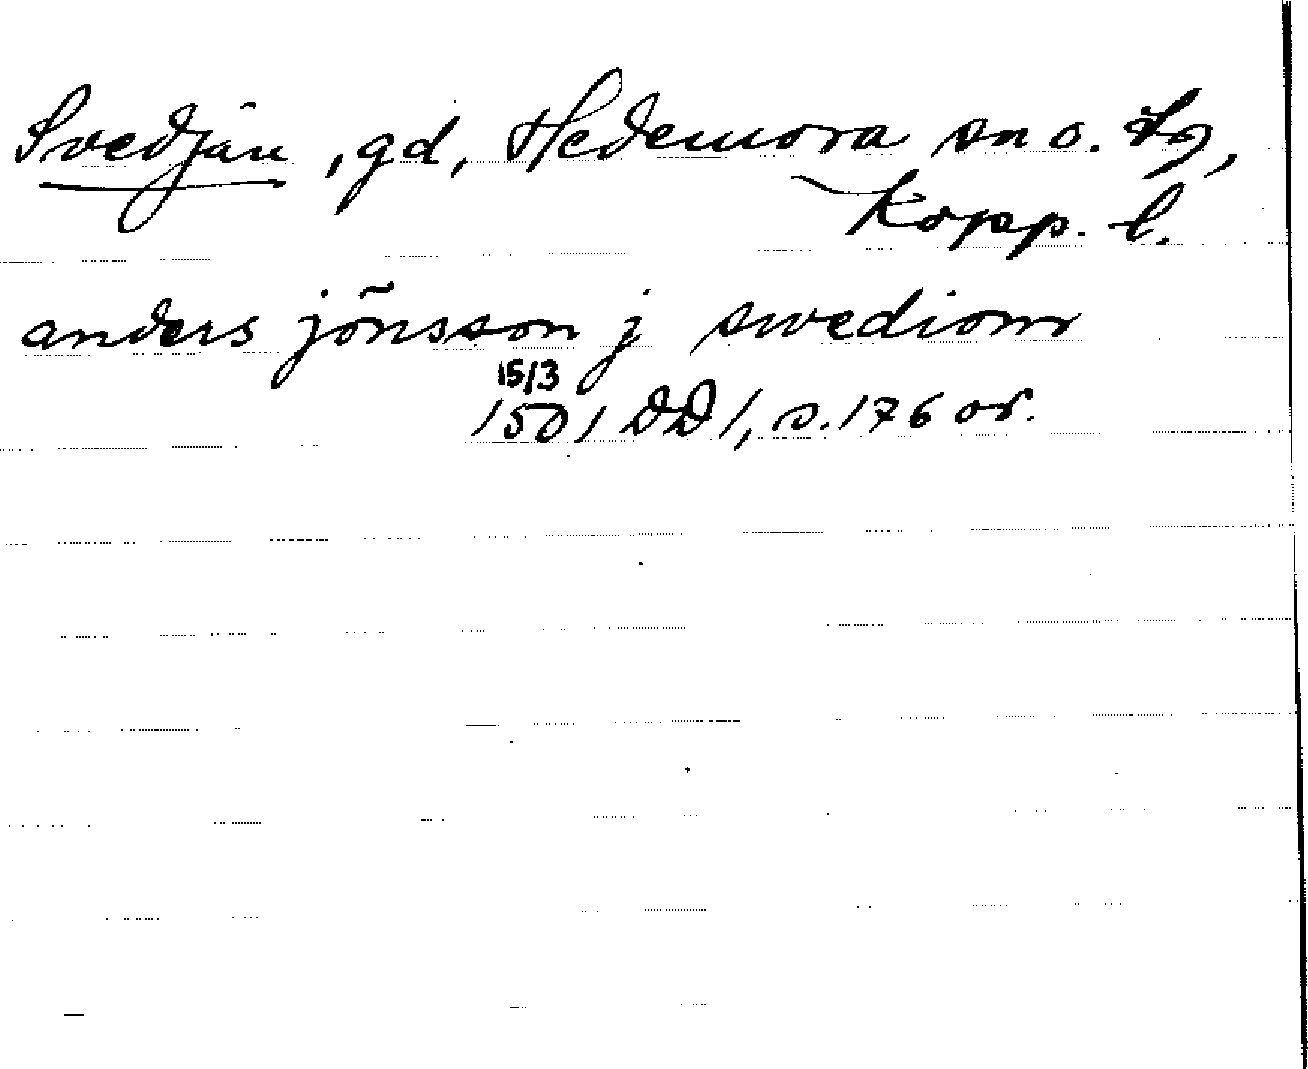 Svedjän, gd, Hedemora sn o. tg,
Kopp. l.
anders jönsson j swediom
15/3
1501 DD 1, s. 176 or.